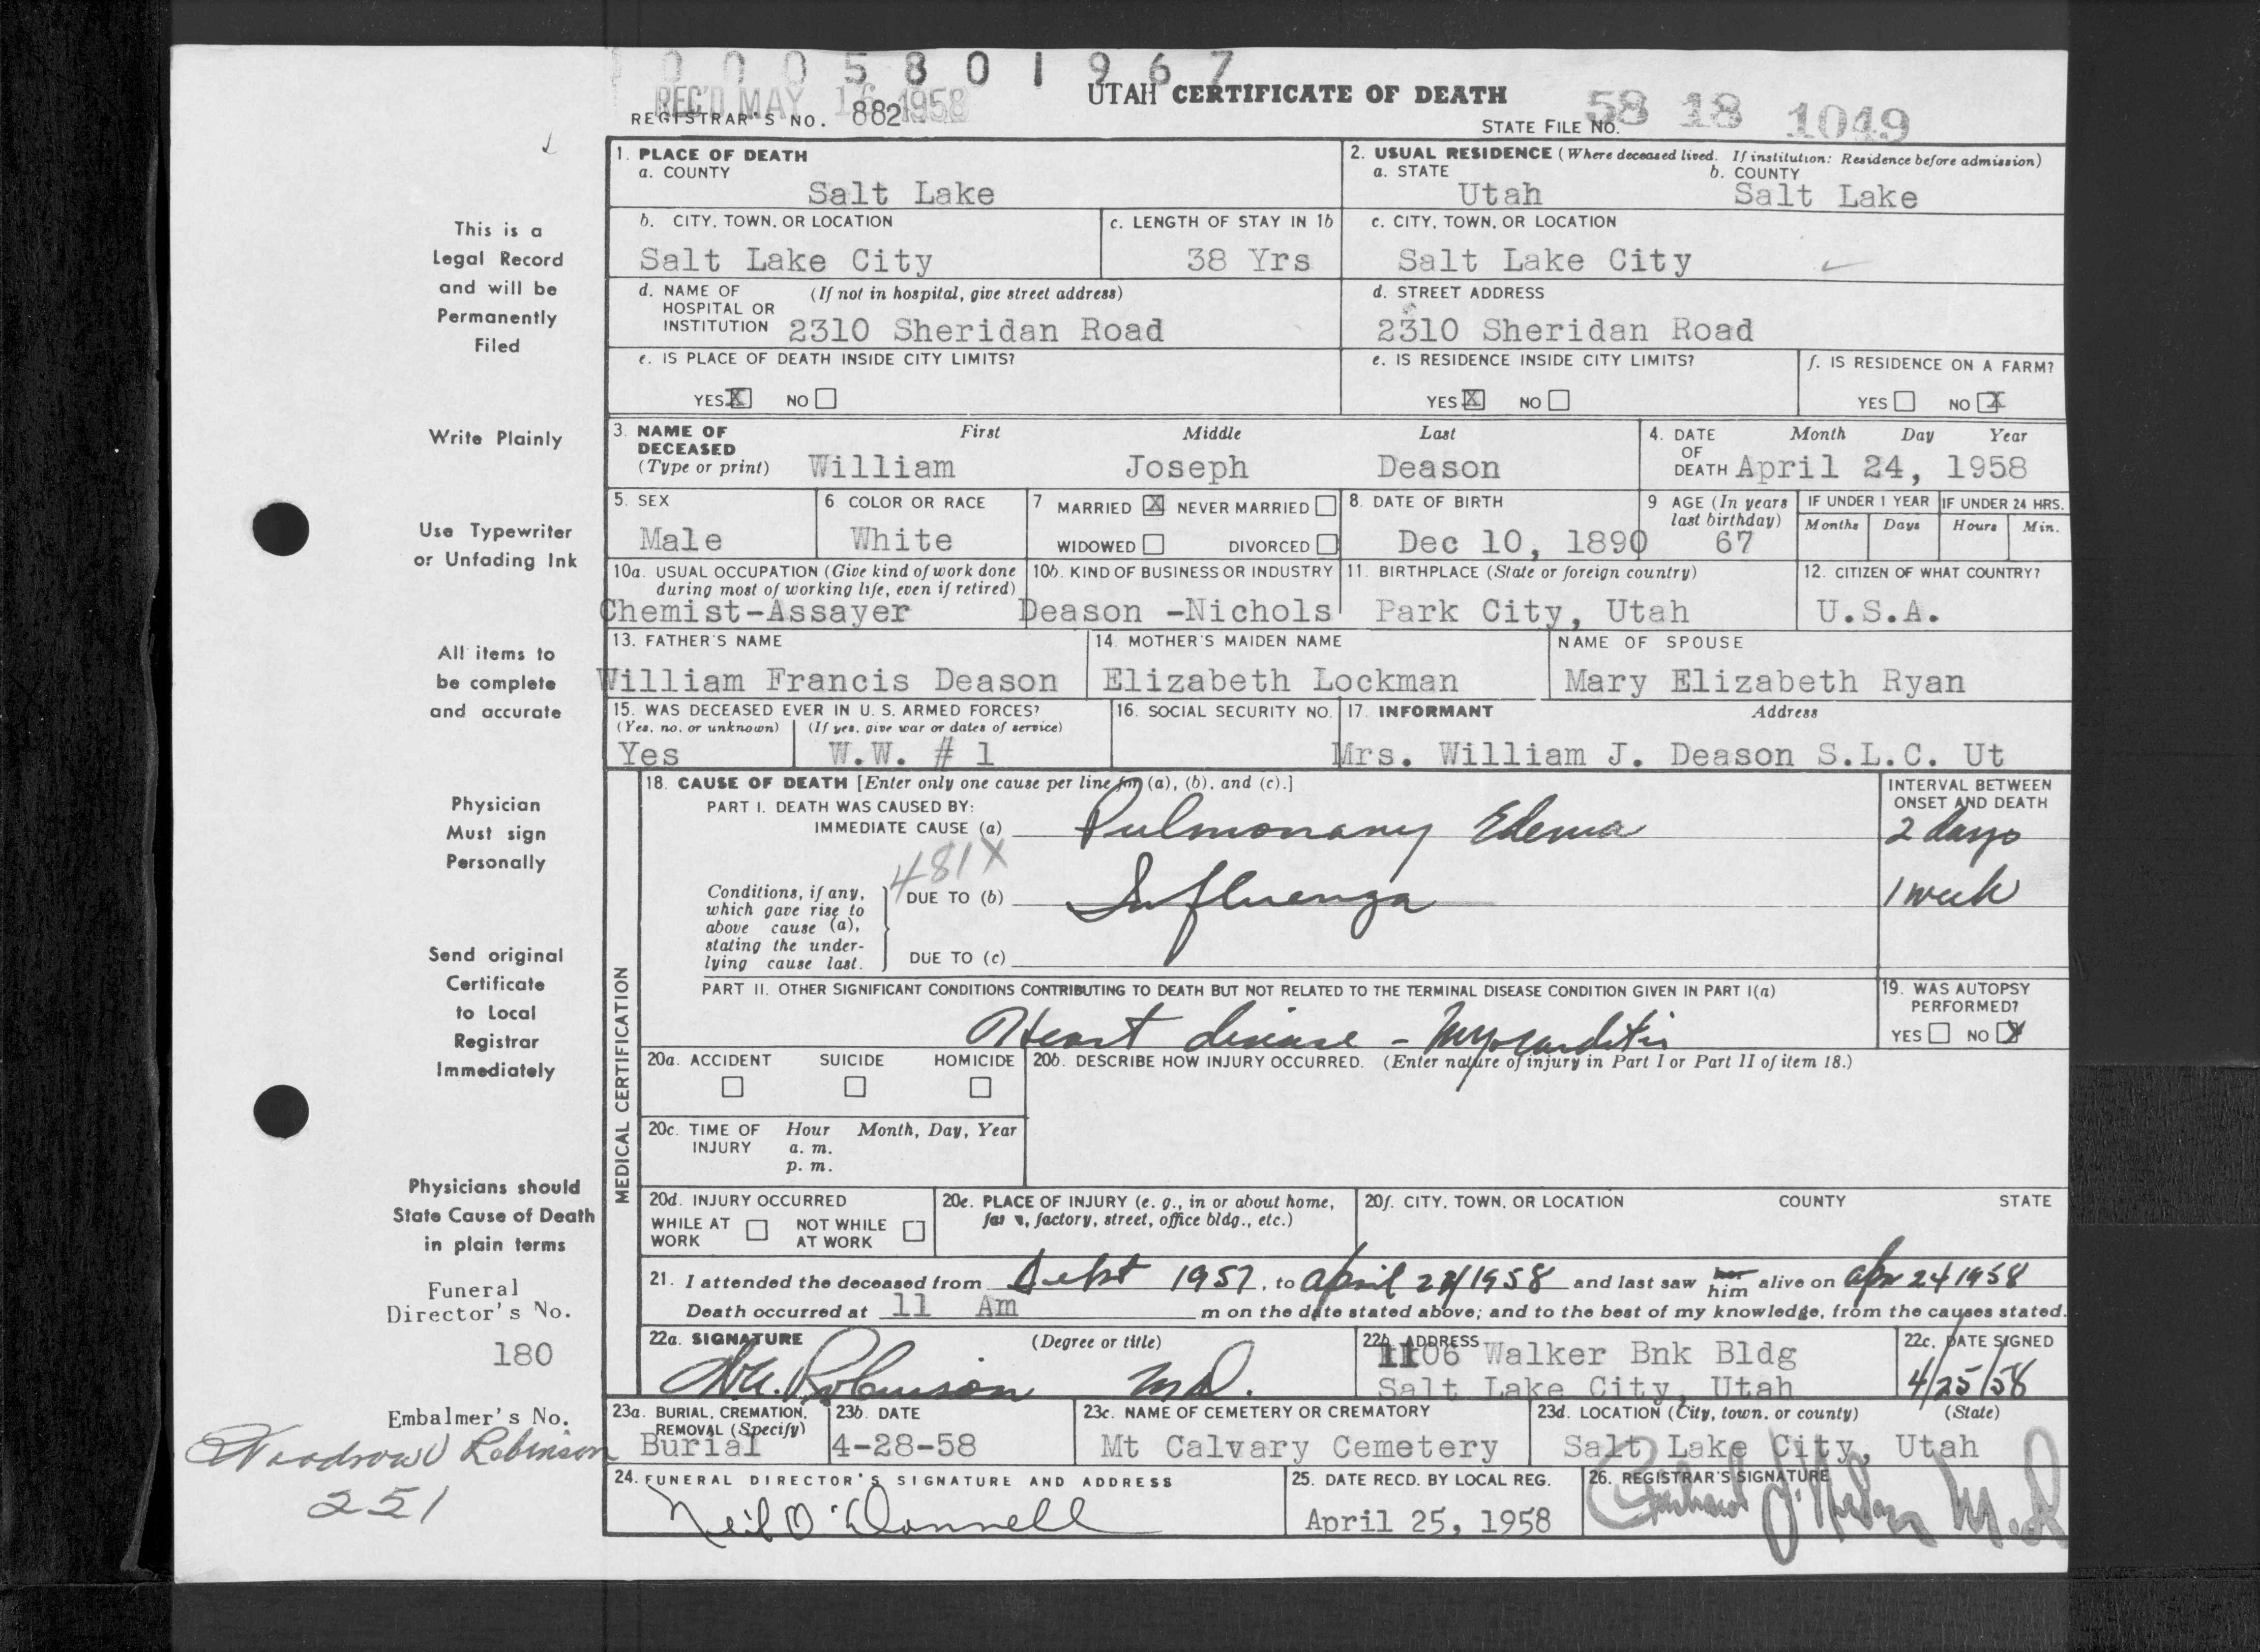 0005801967
REC'D MAY 16 1958
UTAH CERTIFICATE OF DEATH
REGISTRAR'S NO. 882
STATE FILE NO. 58 18 1049
This is a
Legal Record
and will be
Permanently
Filed
Write Plainly
Use Typewriter
or Unfading Ink
All items to
be complete
and accurate
Physician
Must sign
Personally
Send original
Certificate
to Local
Registrar
Immediately
Physicians should
State Cause of Death
in plain terms
Funeral
Director's No.
180
Embalmer's No.
Woodrow Robinson
251
1. PLACE OF DEATH
a. COUNTY
Salt Lake
2. USUAL RESIDENCE (Where deceased lived. If institution: Residence before admission)
a. STATE b. COUNTY
Utah Salt Lake
b. CITY, TOWN, OR LOCATION
Salt Lake City
c. LENGTH OF STAY IN 1b
38 Yrs
c. CITY, TOWN, OR LOCATION
Salt Lake City
d. NAME OF (If not in hospital, give street address)
HOSPITAL OR
INSTITUTION 2310 Sheridan Road
d. STREET ADDRESS
2310 Sheridan Road
e. IS PLACE OF DEATH INSIDE CITY LIMITS?
YES X NO
e. IS RESIDENCE INSIDE CITY LIMITS?
YES X NO
f. IS RESIDENCE ON A FARM?
YES NO X
3. NAME OF DECEASED (Type or print)
First Middle Last
William Joseph Deason
4. DATE OF DEATH
Month Day Year
April 24, 1958
5. SEX
Male
6 COLOR OR RACE
White
7 MARRIED X NEVER MARRIED
WIDOWED DIVORCED
8. DATE OF BIRTH
Dec 10, 1890
9 AGE (In years
last birthday)
67
IF UNDER 1 YEAR
Months Days
IF UNDER 24 HRS.
Hours Min.
10a. USUAL OCCUPATION (Give kind of work done
during most of working life, even if retired)
Chemist-Assayer
10b. KIND OF BUSINESS OR INDUSTRY
Deason -Nichols
11. BIRTHPLACE (State or foreign country)
Park City, Utah
12. CITIZEN OF WHAT COUNTRY?
U.S.A.
13. FATHER'S NAME
William Francis Deason
14. MOTHER'S MAIDEN NAME
Elizabeth Lockman
NAME OF SPOUSE
Mary Elizabeth Ryan
15. WAS DECEASED EVER IN U. S. ARMED FORCES?
(Yes, no, or unknown) (If yes, give war or dates of service)
Yes W.W. # 1
16. SOCIAL SECURITY NO.
17. INFORMANT Address
Mrs. William J. Deason S.L.C. Ut
MEDICAL CERTIFICATION
18. CAUSE OF DEATH [Enter only one cause per line for (a), (b), and (c).]
INTERVAL BETWEEN
ONSET AND DEATH
PART I. DEATH WAS CAUSED BY:
IMMEDIATE CAUSE (a) Pulmonary Edema
2 days
481X
Conditions, if any,
which gave rise to
above cause (a),
stating the under-
lying cause last.
DUE TO (b) Influenza
1 week
DUE TO (c)
PART II. OTHER SIGNIFICANT CONDITIONS CONTRIBUTING TO DEATH BUT NOT RELATED TO THE TERMINAL DISEASE CONDITION GIVEN IN PART I(a)
Heart disease - Myocarditis
19. WAS AUTOPSY
PERFORMED?
YES NO X
20a. ACCIDENT SUICIDE HOMICIDE
20b. DESCRIBE HOW INJURY OCCURRED. (Enter nature of injury in Part I or Part II of item 18.)
20c. TIME OF INJURY
Hour Month, Day, Year
a. m.
p. m.
20d. INJURY OCCURRED
WHILE AT WORK NOT WHILE AT WORK
20e. PLACE OF INJURY (e. g., in or about home,
farm, factory, street, office bldg., etc.)
20f. CITY, TOWN, OR LOCATION COUNTY STATE
21. I attended the deceased from Sept 1957, to April 24/1958 and last saw her him alive on Apr 24 1958
Death occurred at 11 Am m on the date stated above; and to the best of my knowledge, from the causes stated.
22a. SIGNATURE (Degree or title)
Robinson M.D.
22b. ADDRESS
1106 Walker Bnk Bldg
Salt Lake City, Utah
22c. DATE SIGNED
4/25/58
23a. BURIAL, CREMATION,
REMOVAL (Specify)
Burial
23b. DATE
4-28-58
23c. NAME OF CEMETERY OR CREMATORY
Mt Calvary Cemetery
23d. LOCATION (City, town, or county) (State)
Salt Lake City, Utah
24. FUNERAL DIRECTOR'S SIGNATURE AND ADDRESS
Neil O'Donnell
25. DATE RECD. BY LOCAL REG.
April 25, 1958
26. REGISTRAR'S SIGNATURE